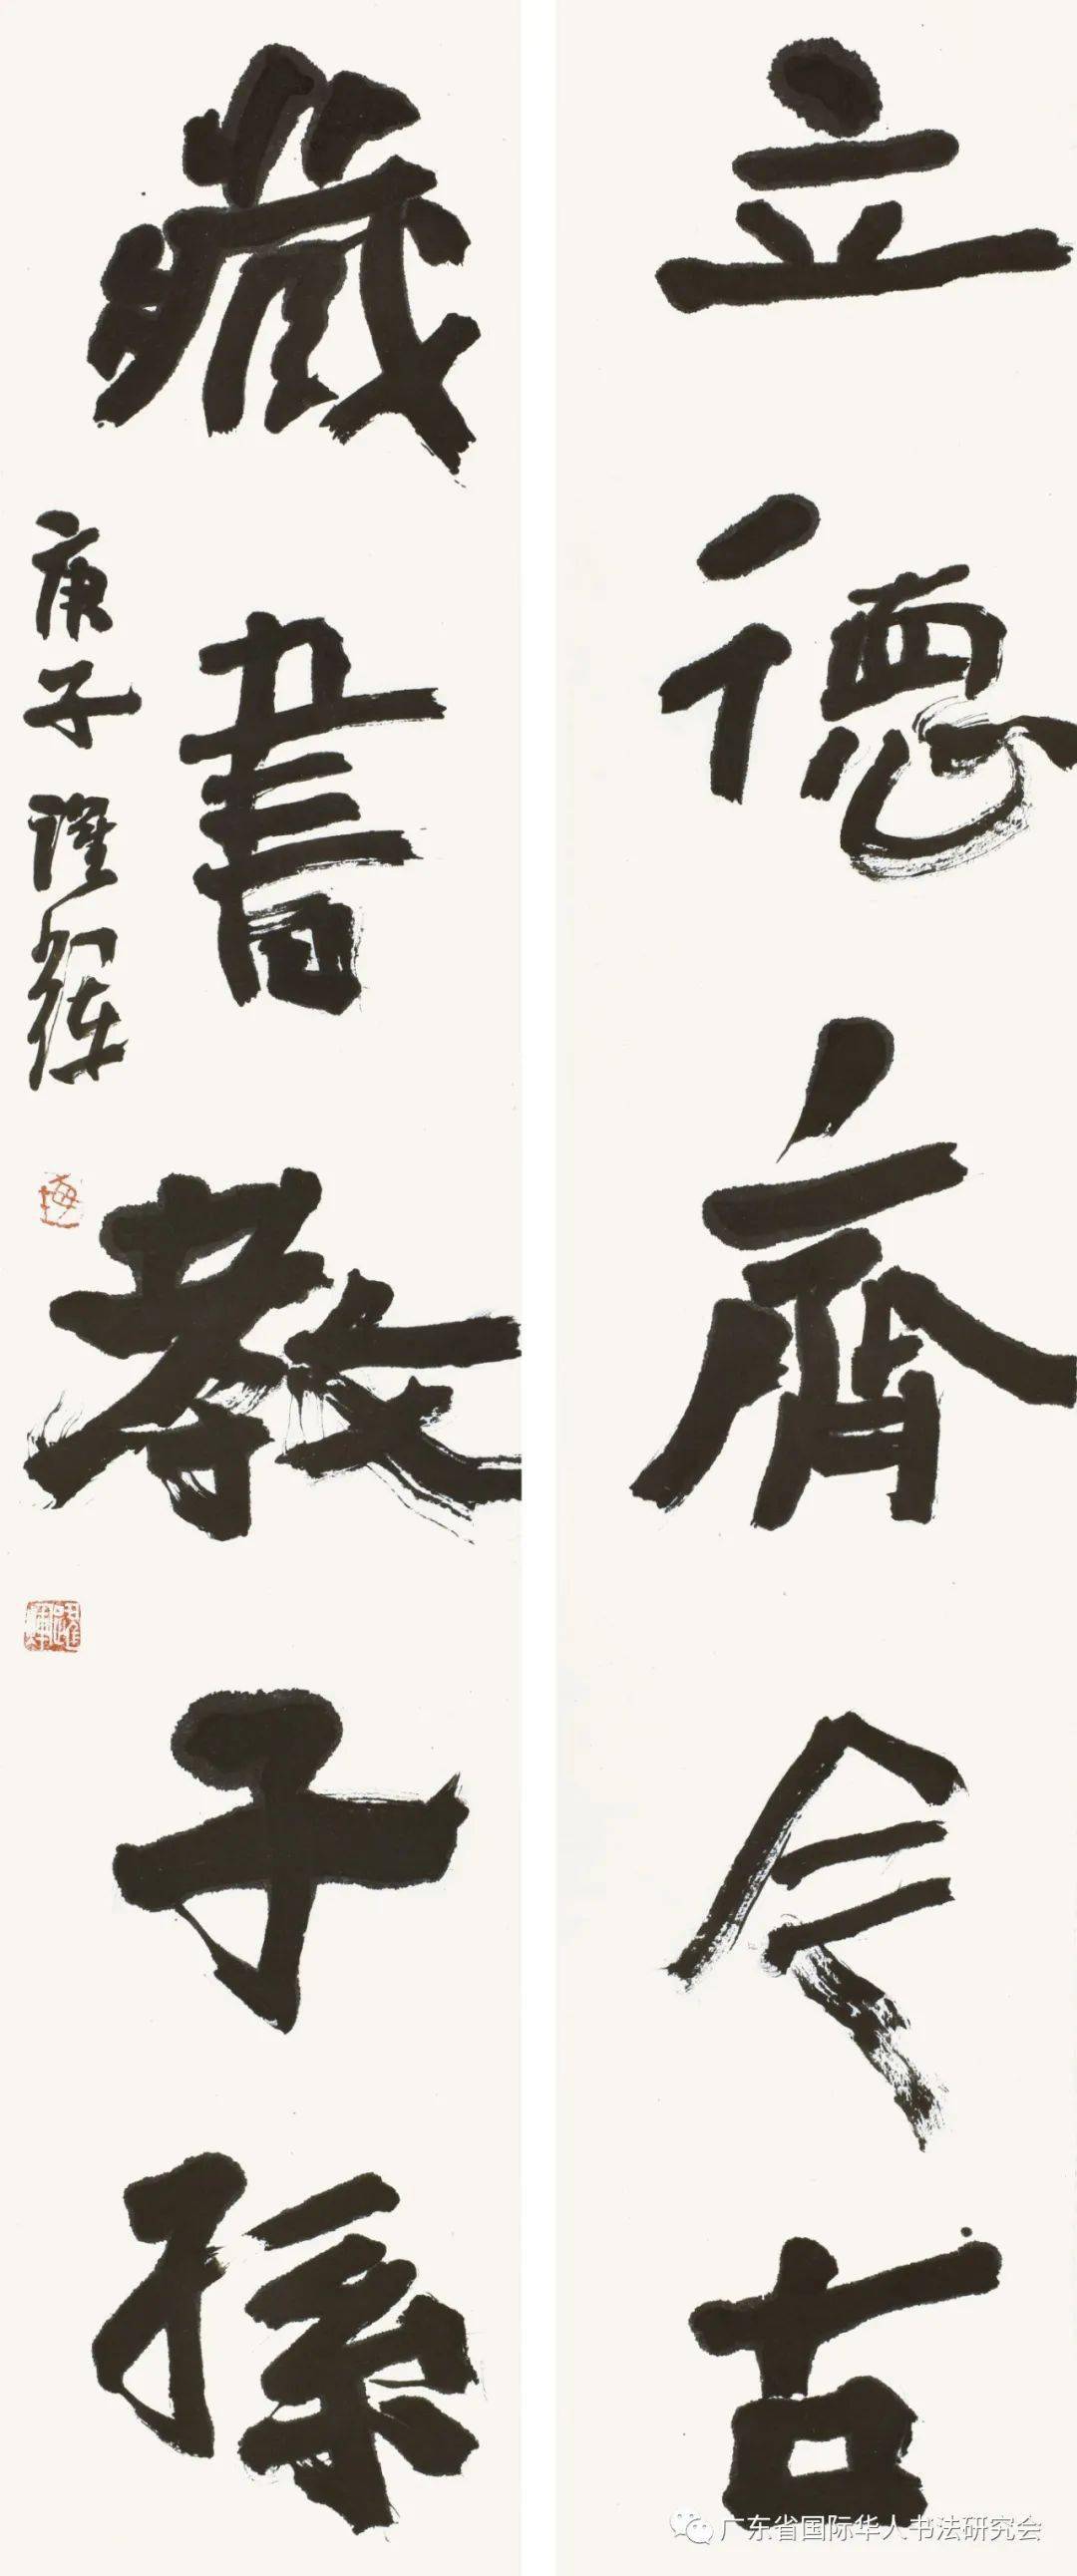 立德齊今古
藏書教子孫
庚子 謹輝
广东省国际华人书法研究会